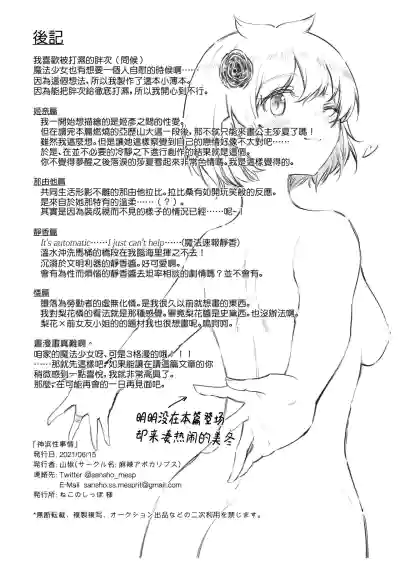 後記
我喜歡被打濕的胖次（問候）
魔法少女也有想要一個人自慰的時候啊……
因為這個想法，所以我製作了這本小薄本。
因為能把胖次給徹底打濕，所以我開心到不行。
姬奈篇
我一開始想描繪的是姬彥之間的性愛。
但在讀完本篇燃燒的亞歷山大這一段後，那不就只能來畫公主莎夏了嗎！
雖然我這麼想。但是讓她這樣察覺到自己的戀情好像不太對吧……
於是、在並不必要的冷靜之下進行創作的結果就是這個。
你不覺得夢醒之後落淚的莎夏看起來非常色情嗎。我是這樣覺得的。
那由他篇
共同生活形影不離的那由他拉比。拉比桑有如開玩笑般的反應。
是來自於她那特有的溫柔……（？）。
其實是因為裝成視而不見的樣子的情況已經……呢~！
靜香篇
It's automatic……I just can't help……(魔法速報靜香)
溫水沖洗馬桶的橋段在我腦海里揮之不去！
沉溺於文明利器的靜香醬。好可愛啊。
會有為性而煩惱的靜香醬去坦率相談的劇情嗎？並不會有。
憐篇
墮落為勞動者的虛無化憐。是我很久以前就想畫的東西。
我對梨花憐的看法就是那種感覺。畢竟梨花醬是史黛西。也沒辦法啊。
梨花×前女友小姐的的題材我也很想畫呢。嗚呵呵。
畫漫畫真難啊。
咱家的魔法少女呀、可是3格漫的哦！！！
……那就先這樣吧。如果能讓在讀這篇文章的你
稍微感到一點喜悅，我就非常高興了。
那麼，在可能再會的一日再見面吧。
明明没在本篇登场
却来凑热闹的美冬
「神浜性事情」
発行日: 2021/06/15
発行者: 山椒(サークル名: 麻辣アポカリプス)
連絡先: Twitter @sansho_mesp
E-Mail sansho.ss.mesprit@gmail.com
発行所: ねこのしっぽ 様
*無断転載、複製複写、オークション出品などの二次利用を禁じます。